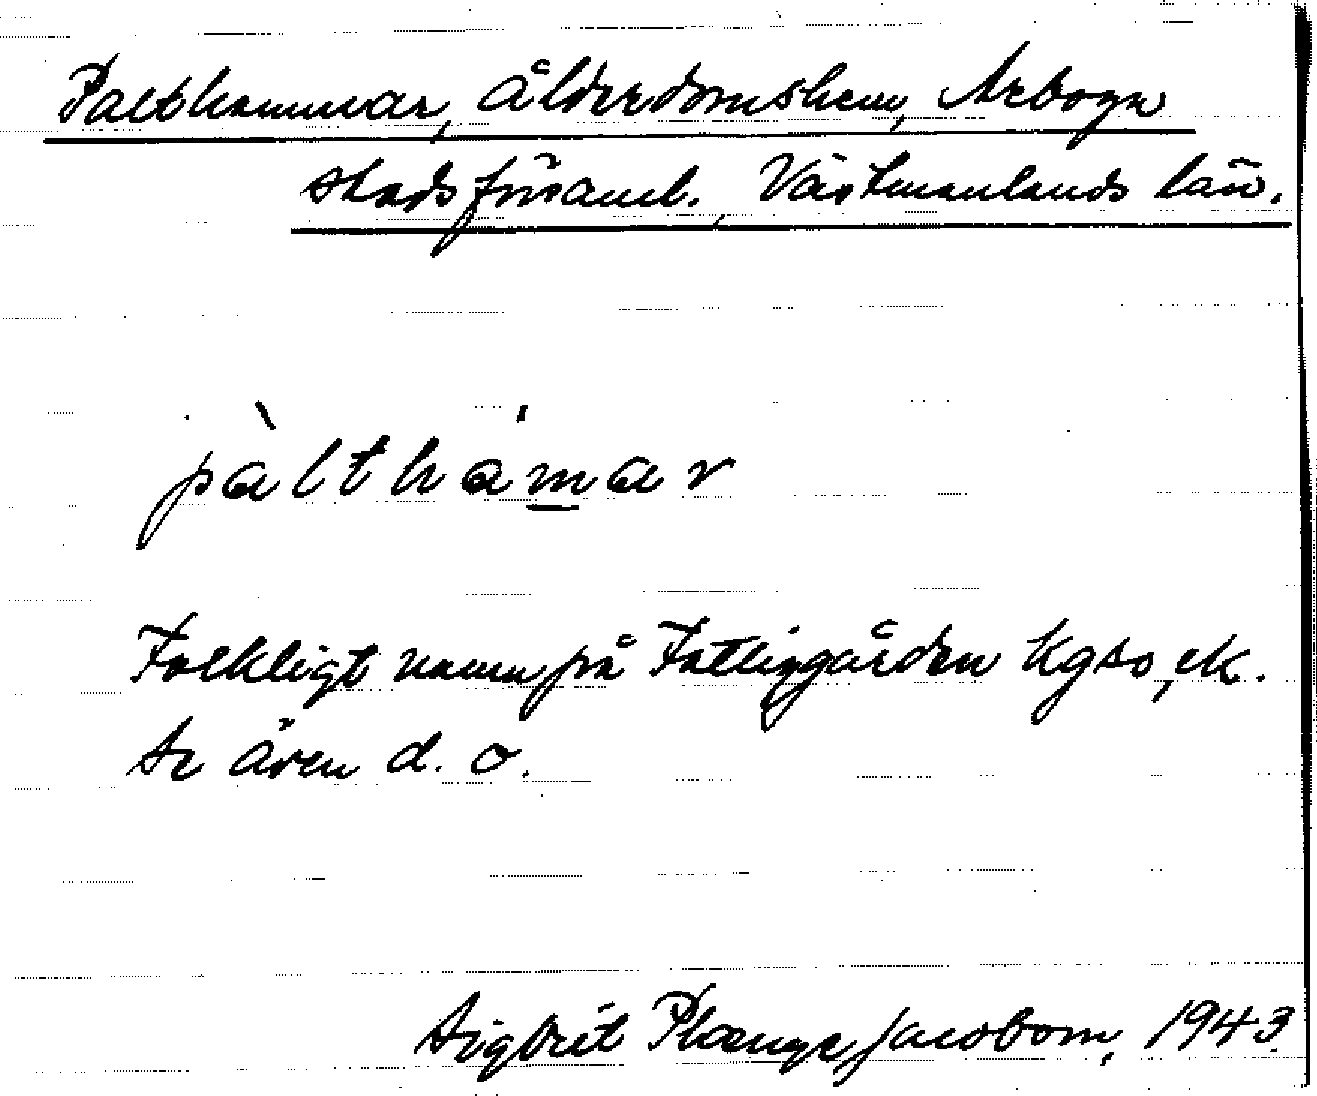 Palthammar, ålderdomshem, Arboga
stadsförsaml. Västmanlands län.
pàlthámar
Folkligt namn på Fattiggården Kgso, ek.
Se även d. o.
Sigbrit Plænge Jacobson, 1943.